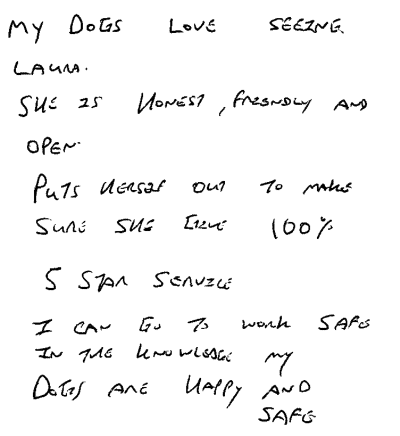 MY DOGS LOVE SEEING
LAURA.
SHE IS HONEST, FRIENDLY AND
OPEN.
PUTS HERSELF OUT TO MAKE
SURE SHE GIVE 100%
5 STAR SERVICE
I CAN GO TO WORK SAFE
IN THE KNOWLEDGE MY
DOGS ARE HAPPY AND
SAFE